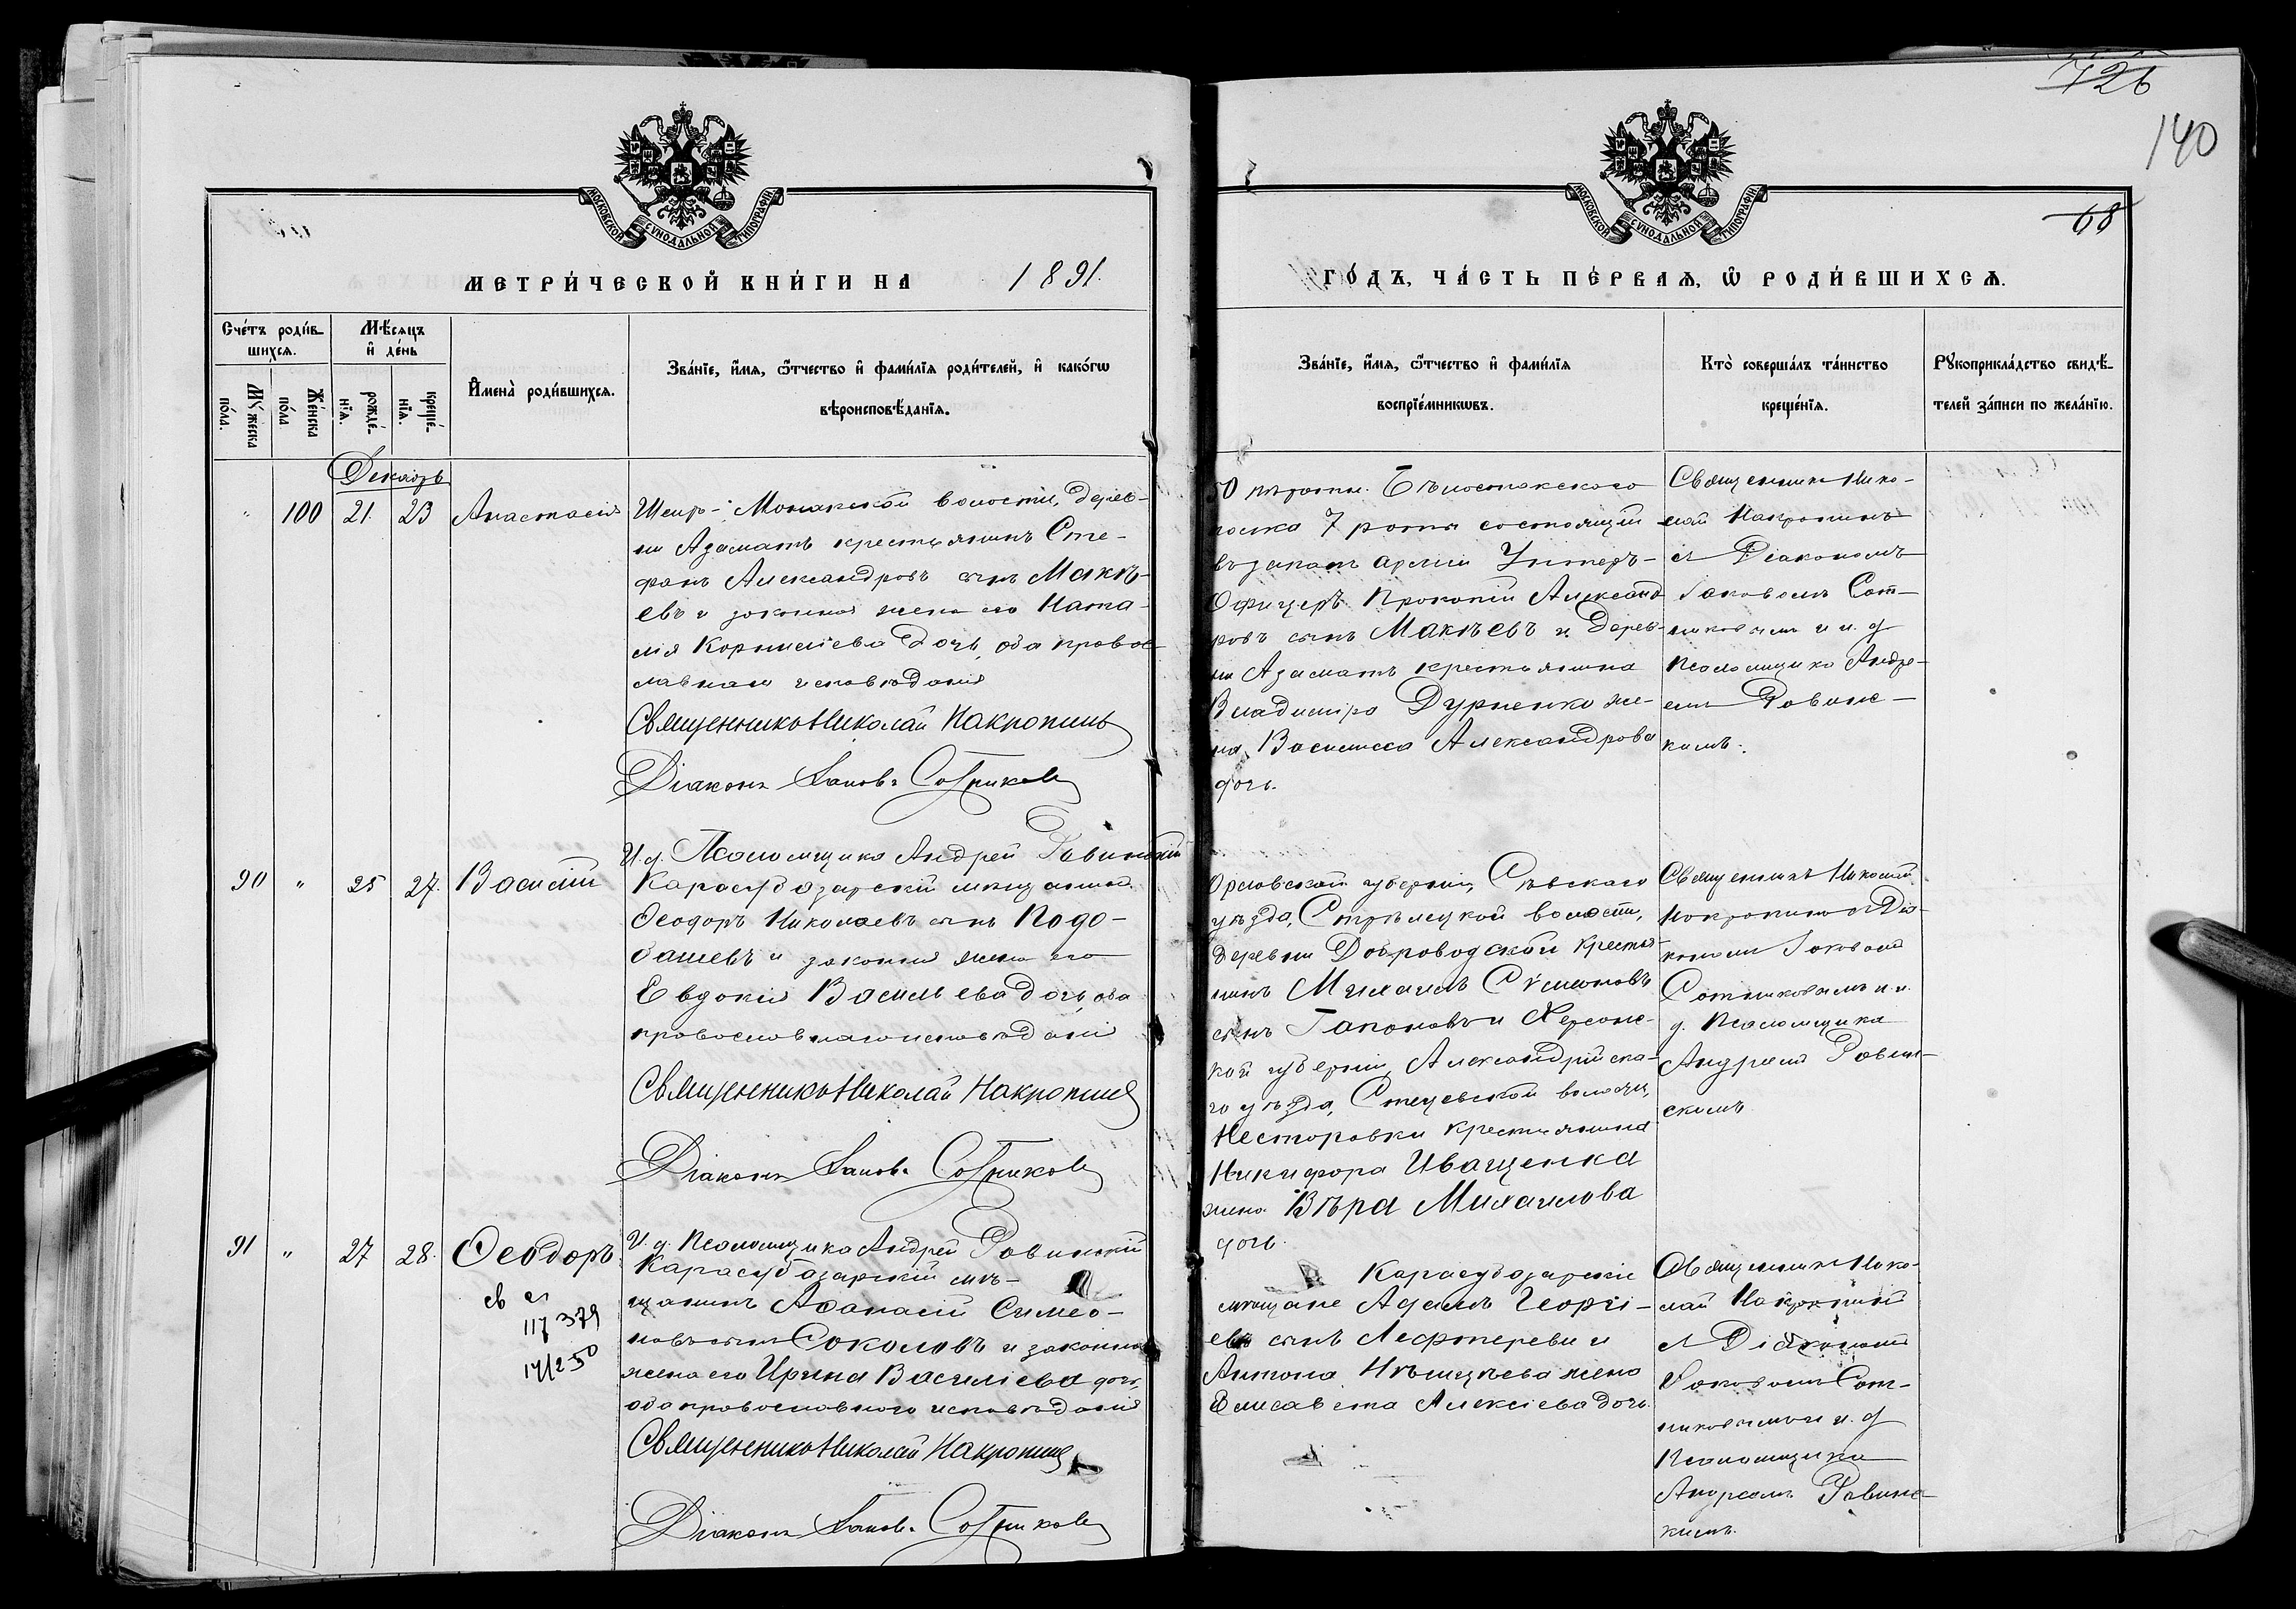 726
140
68
МОСКОВСКОЙ СѴНОДАЛЬНОЙ ТИПОГРАФІИ
МЕТРИ́ЧЕСКОЙ КНИ́ГИ НА 1891.
Сче́тъ роди́в-
шихсѧ.
Мѣ́сѧцъ
и҆ де́нь
Му́жеска
по́ла.
Же́нска
по́ла
рожде́-
нїѧ.
креще́-
нїѧ.
И҆мена̀ роди́вшихсѧ.
Зва́нїе, и҆́мѧ, ѻ҆́тчество и҆ фами́лїѧ роди́телей, и҆ како́гѡ
вѣроисповѣ́данїѧ.
Декабрь
" 100 21. 23 Анастасія
Шеир-Монакской волости, дерев-
ни Азаматъ крестьянинъ Сте-
фанъ Александровъ сынъ Макѣ-
евъ и законная жена его Ната-
лія Корниліева дочь, оба право-
славнаго исповѣданія
Священникъ Николай Накропинъ
Діаконъ Іаковъ Сотниковъ
И. д. Псаломщика Андрей Ровинскій
90 " 25 27. Василій
Карасубазарскій мѣщанинъ
Ѳеодоръ Николаевъ сынъ Подо-
башевъ и законная жена его
Евдокія Васильева дочь, оба
православнаго исповѣданія
Священникъ Николай Накропинъ
Діаконъ Іаковъ Сотниковъ
И. д. Псаломщика Андрей Ровинскій
91 " 27 28. Ѳеодоръ
св
117 379
Карасубазарскій мѣ-
щанинъ Аѳанасій Симео-
новъ сынъ Соколовъ и законная
жена его Ирина Василіева дочь,
оба православнаго исповѣданія
Священникъ Николай Накропинъ
Діаконъ Іаковъ Сотниковъ
МОСКОВСКОЙ СѴНОДАЛЬНОЙ ТИПОГРАФІИ
ГО́ДЪ, ЧА́СТЬ ПЕ́РВАѦ, Ѡ҆ РОДИ́ВШИХСѦ.
Зва́нїе, и҆́мѧ, ѻ҆́тчество и҆ фами́лїѧ
воспрїе́мникѡвъ.
Кто̀ соверша́лъ та́инство
креще́нїѧ.
Рꙋкоприкла́дство свидѣ́-
телей за́писи по жела́нїю.
50 пѣхотн. Бѣлостокскаго
полка 7 роты состоящій
въ запасѣ арміи Унтеръ-
Офицеръ Прокопій Александ
ровъ сынъ Макѣевъ и дерев-
ни Азаматъ крестьянина
Владиміра Дурненко же-
на Василисса Александрова
дочь.
Священникъ Нико-
лай Накропинъ
съ Діакономъ
Іаковомъ Сот-
никовымъ и и. д
Псаломщика Андре-
емъ Ровинс-
кимъ.
Орловской губерніи, Сѣвскаго
уѣзда, Стрѣлецкой волости,
деревни Доброводской крестья-
нинъ Михаилъ Сѵмеоновъ
сынъ Гапоновъ и Херсонс-
кой губерніи, Александрійска-
го уѣзда, волости,
Несторовки крестьянина
Никифора Иващенка
жена Вѣра Михаилова
дочь.
Священникъ Николай
Накропинъ съ Діа-
кономъ Іаковомъ
Сотниковымъ и и.
д. Псаломщика
Андреемъ Ровин-
скимъ
Карасубазарскіе
мѣщане Адамъ Георгі-
евъ сынъ Лефтереви и
Антона жена
Елисавета Алексіева дочь.
Священникъ Нико-
лай Накропинъ
съ Діакономъ
Іаковомъ Сот-
никовымъ и и. д
Псаломщика
Андреемъ Ровинс-
кимъ.